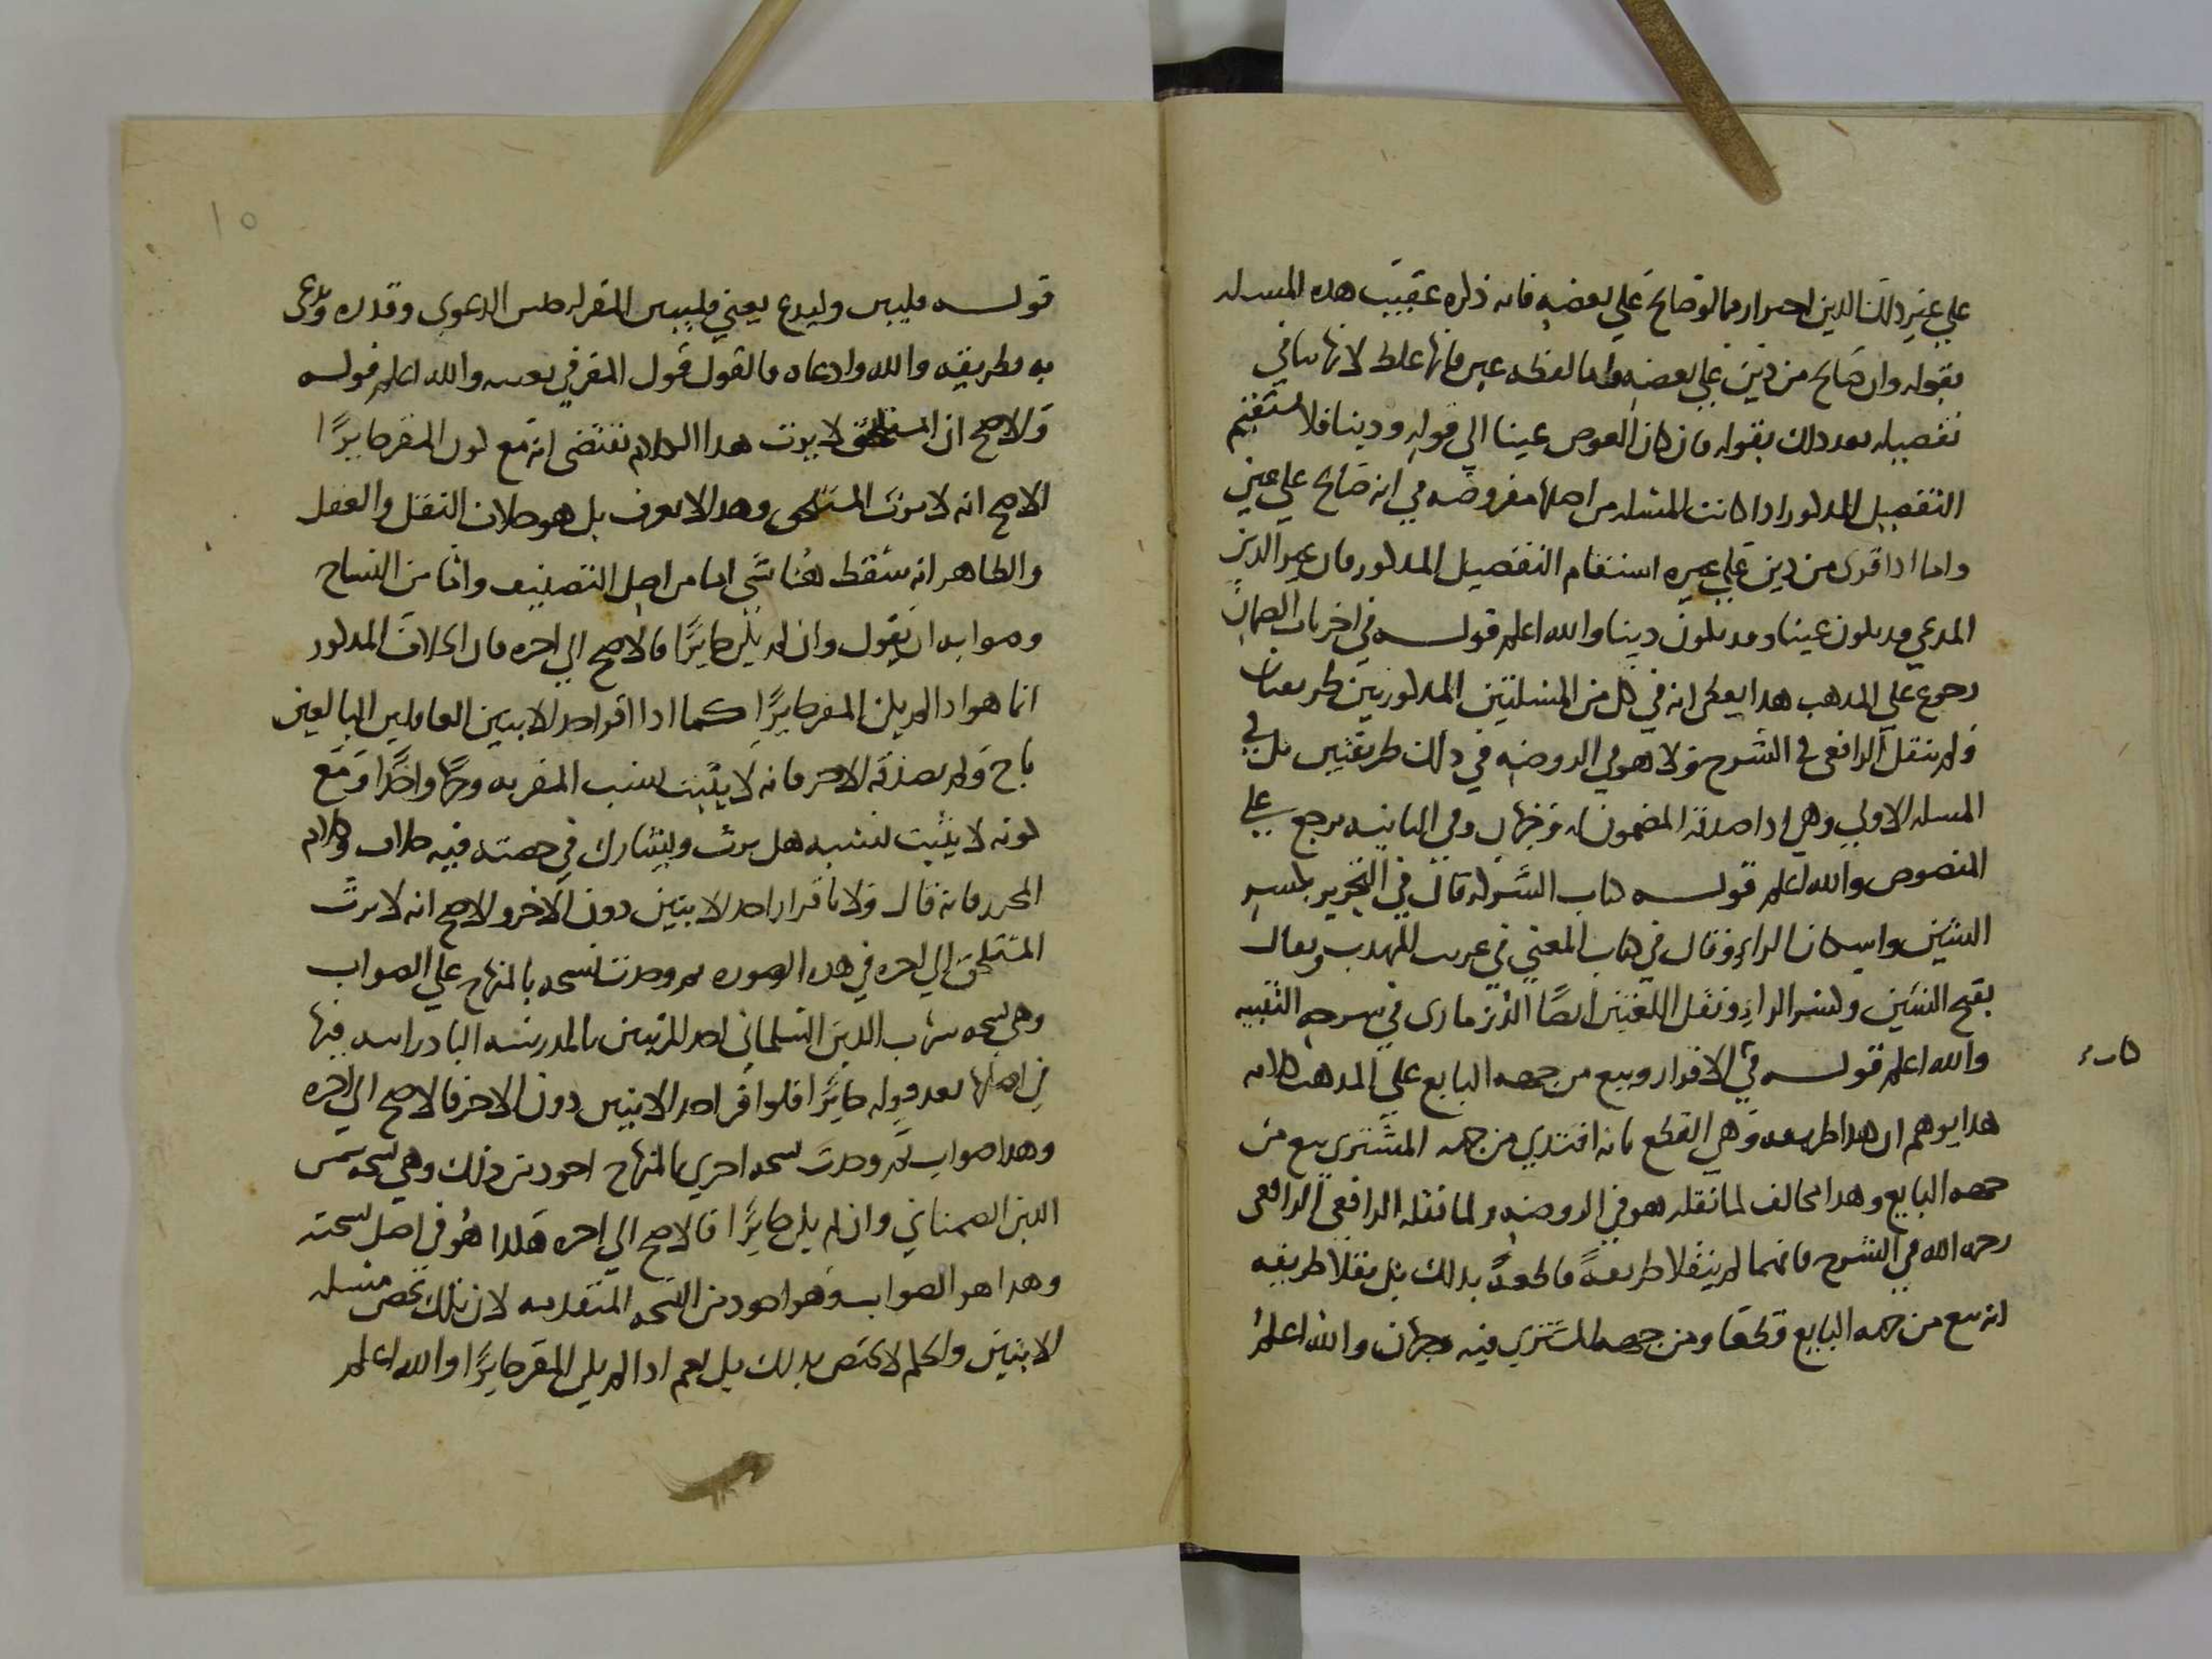 علي غير ذلك الدين احترار مما لو صالح علي بعضه فانه ذكره عقيب هذه المسله
بقوله وان صالح من دين علي بعضه واما لفظه عين فانها غلط لانها تنافي
تفصيله بعد ذلك بقوله فان كان العوض عينا الي قوله ودينا فلا يستقيم
التفصيل المذكور اذا كانت المسله من اصلها مفروضه في انه صالح علي عين
واما اذا قري من دين علي غيره استقام التفصيل المذكور فان غير الدين
المدعي قد يكون عينا وقد يكون دينا والله اعلم قوله في اخر باب الضمان
رجوع علي المذهب هذا يعطي انه في كل من المسلتين المذكورتين طريقان
ولم ينقل الرافعي في الشرح ولا هو في الروضه في ذلك طريقين بل في
المسله الاولي وهي اذا صدقه المضمون له وجهان وفي الثانيه يرجع علي
المنصوص والله اعلم قوله كتاب الشركه قال في التحرير بكسر
الشين واسكان الراء وقال في كتاب المغني في غريب المهذب ويقال
بفتح الشين وكسر الراء ونقل اللغتين ايضا الدزماري في شرحه التنبيه
والله اعلم قوله في الاقرار وبيع من جهه البايع علي المذهب كلامه
هذا يوهم ان هذا طريقه وهي القطع بانه افتدي من جهه المشتري بيع من
جهه البايع وهذا مخالف لما نقله هو في الروضه ولما نقله الرافعي الرافعي
رحمه الله في الشرح فانهما لم ينقلا طريقة قاطعة بذلك بل نقلا طريقه
انه بيع من جهه البايع قطعا ومن جهه المشتري فيه وجهان والله اعلم
كتاب
١٥
قوله فليبين وليدع يعني فليبين المقر له جنس الدعوي وقدره ويدعي
به وطريقه والله وادعاه فالقول قول المقر في نفيه والله اعلم قوله
والاصح ان المستلحق لا يرث هذا الكلام يقتضي انه مع كون المقر حايزا
الاصح انه لا يرث المستلحق وهذا لا يعرف بل هو خلاف النقل والعقل
والظاهر انه سقط هنا شي اما من اصل التصنيف واما من النساخ
وصوابه ان يقول وان لم يكن حايزا فالاصح الي اخره فان الخلاف المذكور
انما هو اذا لم يكن المقر حايزا كما اذا اقر احد الابنين العاقلين البالغين
باخ ولم يصدقه الاخر فانه لا يثبت نسب المقر به وجها واحدا ومع
كونه لا يثبت نسبه هل يرث ويشارك في حصته فيه خلاف وكلام
المحرر فانه قال ولا باقرار احد الابنين دون الاخر والاصح انه لا يرث
المستلحق الي اخره في هذه الصوره ثم وجدت نسخه بالمنهاج علي الصواب
وهي نسخه شهاب الدين السلماني احد المرتبين بالمدرسه البادراسه فيها
في اصلها بعد قوله حايزا فلو اقر احد الابنين دون الاخر فالاصح الي اخره
وهذا صواب ثم وجدت نسخه اخري بالمنهاج اجود من ذلك وهي نسخه شمس
الدين الصمناني وان لم يكن حايزا فالاصح الي اخره هكذا هو في اصل نسخته
وهذا هو الصواب وهو اجود من النسخه المتقدمه لان تلك تخص مسله
الابنين والحكم لا يختص بذلك بل يعم اذا لم يكن المقر حايزا والله اعلم